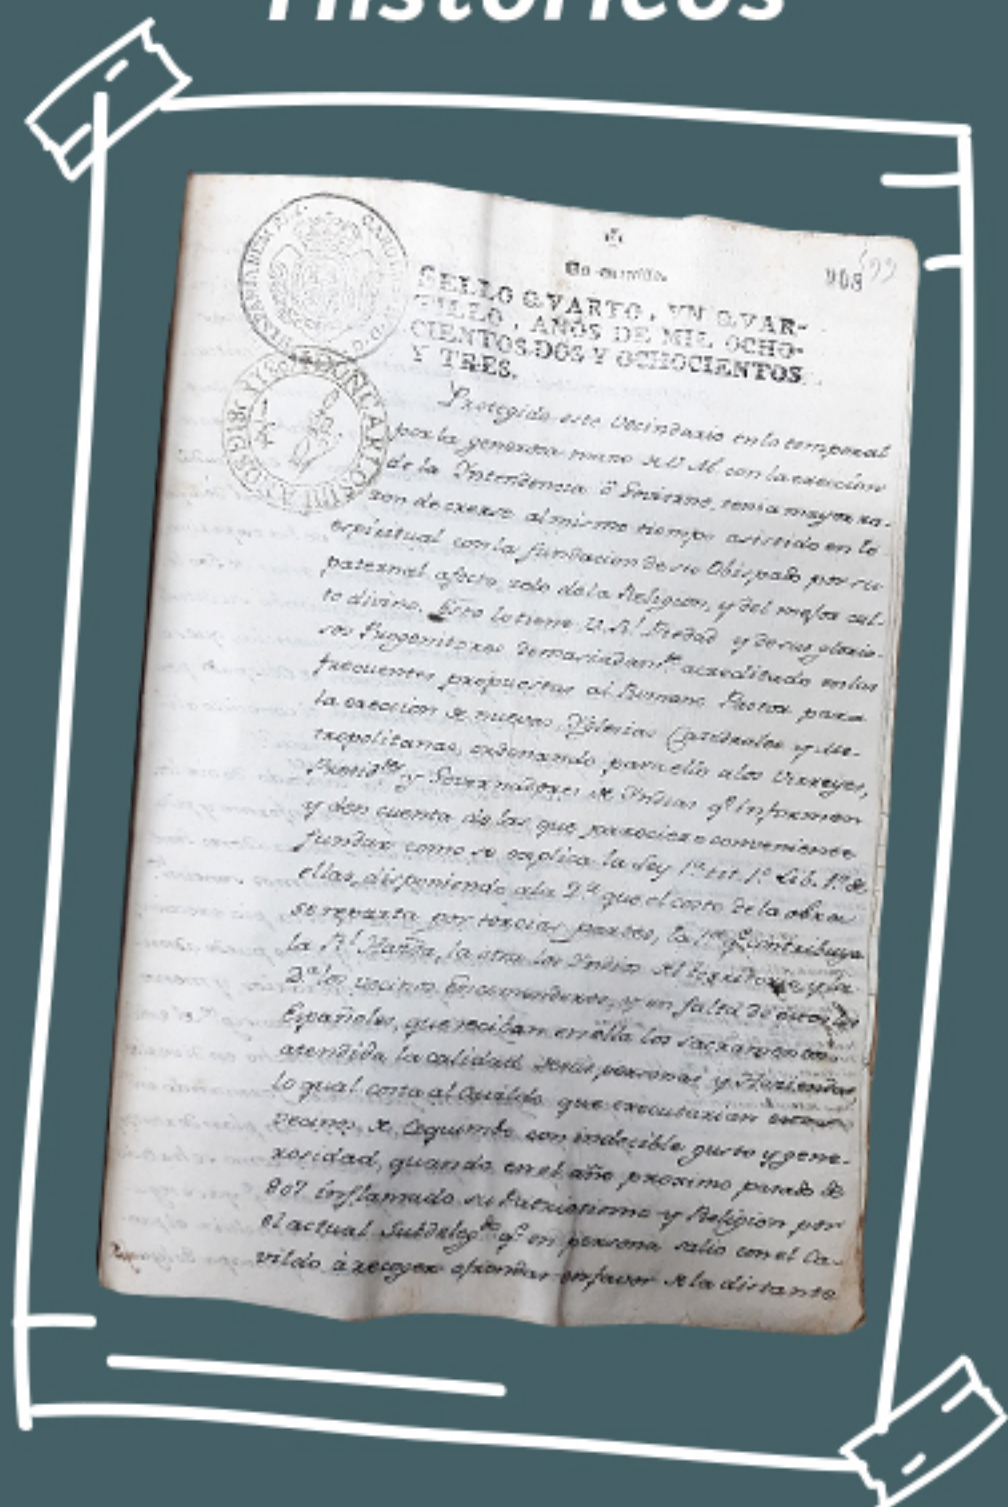 Históricos
HISPANIARUM CAROL D. G.
Un quartillo.
908
SELLO QVARTO, VN QVAR-
TILLO, AÑOS DE MIL OCHO-
CIENTOS DOS Y OCHOCIENTOS
Y TRES.
Protegido este Vecindario en lo temporal
por la generosa mano de V. M. con la ereccion
de la Intendencia ô Govierno, tenia mayor ra-
zon de creerse al mismo tiempo asistido en lo
espiritual con la fundacion de su Obispado por su
paternal afecto, zelo de la Religion, y del mejor cul-
to divino. Esto lo tiene V. Rl. Piedad y de sus glorio-
sos Progenitores demasiadamte. acreditado en las
frecuentes propuestas al Romano Pastor para
la ereccion de nuevas Yglesias Catedrales y Me-
tropolitanas, ordenando para ello a los Virreyes,
Presidtes y Governadores de Yndias qe. informen
y den cuenta de las que pareciere conveniente
fundar como se explica la Ley 1a. tit. 1o. Lib. 1o. de
ellas, disponiendo a la 2a. que el costo de la obra
se reparta por tercias partes, la 1a. qe. contribuya
la Rl. Hazda, la otra los Yndios del territorio, y la
los vecinos Encomenderos, y en falta de estos los
Españoles, que reciban en ella los sacramentos
atendida la calidad de sus personas y Haziendas,
lo qual consta al Cavildo que executarian
vecinos de Coquimbo con indecible gusto y gene-
rosidad, quando en el año proximo pasado de
807 inflamado su Patriotismo y Religion por
el actual Subdelegdo. qe. en persona salio con el Ca-
vildo à recoger en favor de la distante